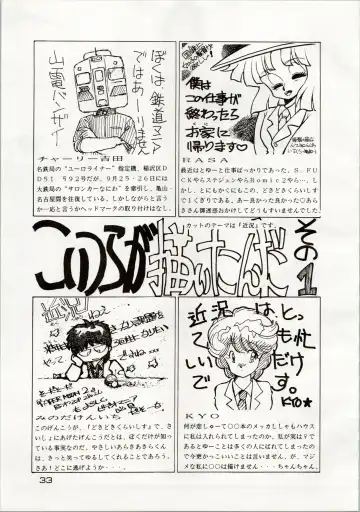 ぼくは、鉄道マニア
ではあーりません
山電バンザーイ
チャーリー吉田
名鉄局の“ユーロライナー”指定機、稲沢区D
D51 592号だが、9月25・26日には
大鉄局の“サロンカーなにわ”を牽引し、亀山
名古屋間を往復している。しかしながらと言う
か一応と言うかヘッドマークの取り付けはなし。
僕は
コノ仕事が
終わったら
お家に
帰ります♡
RASA
最近はどゆーと仕事ばっかりであった、S、FU
CKやらスケジュンやらRomic2やら…、し
かし、とにもかくにもこの、どきどきくらいしす
で1くぎりである。あー良かった良かった○あら
さきさん御迷惑おかけしてどうもすいませんでした。
カットのテーマは「近況」です。
こいつらが描いたんだ
その1
近況
やって
みのだけんいち
このげんこうが、「どきどきくらいしす」で、さ
いしょにあげたげんこうだとは、ぼくだけが知っ
ている事実なのだ。やさしいあらきあきらくん
は、きっと笑ってゆるしてくれることであろう。
さあ！どこに逃げようか・・・。
近況は、とっ
ても忙
しいだけ
です。
KYO★
KYO
何が悲しゅーて○○本のメッカししゃもハウス
に私は入れられてしまったのか、私が実は?で
あるとゆーことは多くの人にばれてしまったの
で今更かっこいいことは言いませんが、マジメ
な私に○○は描けません・・・ちゃんちゃん。
33